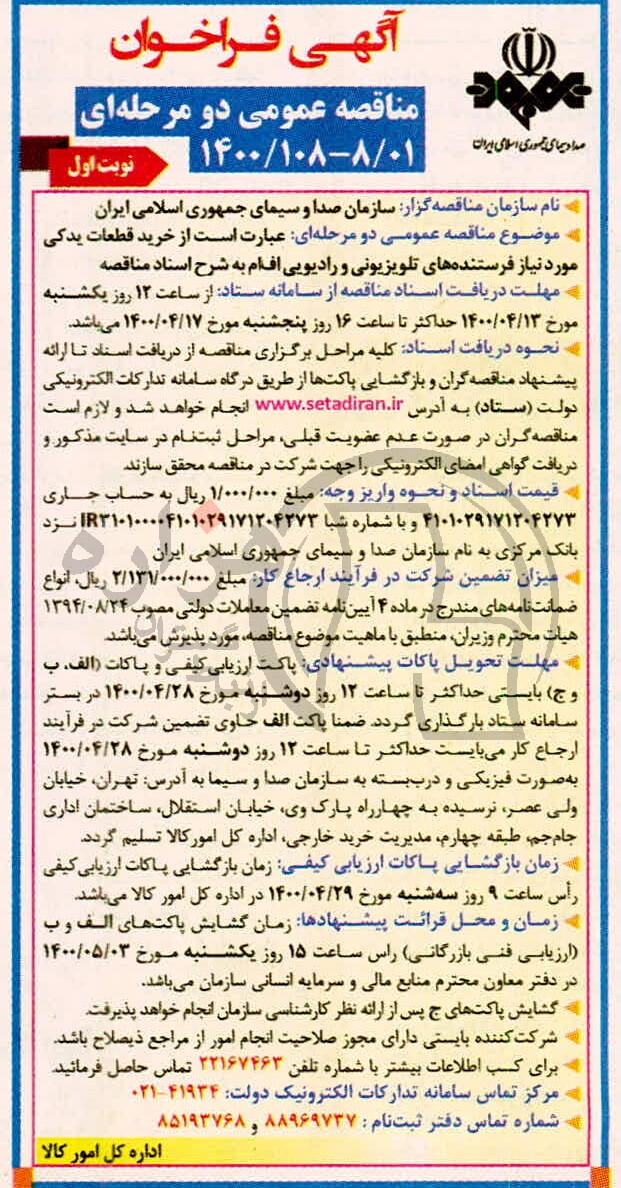 آگهی فراخوان
صدا و سیمای جمهوری اسلامی ایران
مناقصه عمومی دو مرحله‌ای
۱۴۰۰/۱۰۸-۸/۰۱
نوبت اول
نام سازمان مناقصه‌گزار: سازمان صدا و سیمای جمهوری اسلامی ایران
موضوع مناقصه عمومی دو مرحله‌ای: عبارت است از خرید قطعات یدکی
مورد نیاز فرستنده‌های تلویزیونی و رادیویی اف‌ام به شرح اسناد مناقصه
مهلت دریافت اسناد مناقصه از سامانه ستاد: از ساعت ۱۲ روز یکشنبه
مورخ ۱۴۰۰/۰۴/۱۳ حداکثر تا ساعت ۱۶ روز پنجشنبه مورخ ۱۴۰۰/۰۴/۱۷ می‌باشد.
نحوه دریافت اسناد: کلیه مراحل برگزاری مناقصه از دریافت اسناد تا ارائه
پیشنهاد مناقصه‌گران و بازگشایی پاکت‌ها از طریق درگاه سامانه تدارکات الکترونیکی
دولت (ستاد) به آدرس www.setadiran.ir انجام خواهد شد و لازم است
مناقصه‌گران در صورت عدم عضویت قبلی، مراحل ثبت‌نام در سایت مذکور و
دریافت گواهی امضای الکترونیکی را جهت شرکت در مناقصه محقق سازند.
قیمت اسناد و نحوه واریز وجه: مبلغ ۱/۰۰۰/۰۰۰ ریال به حساب جاری
۴۱۰۱۰۲۹۱۷۱۲۰۴۲۷۳ و با شماره شبا IR۳۱۰۱۰۰۰۰۴۱۰۱۰۲۹۱۷۱۲۰۴۲۷۳ نزد
بانک مرکزی به نام سازمان صدا و سیمای جمهوری اسلامی ایران
میزان تضمین شرکت در فرآیند ارجاع کار: مبلغ ۲/۱۳۱/۰۰۰/۰۰۰ ریال، انواع
ضمانت‌نامه‌های مندرج در ماده ۴ آیین‌نامه تضمین معاملات دولتی مصوب ۱۳۹۴/۰۸/۲۴
هیات محترم وزیران، منطبق با ماهیت موضوع مناقصه، مورد پذیرش می‌باشد.
مهلت تحویل پاکات پیشنهادی: پاکت ارزیابی کیفی و پاکات (الف، ب
و ج) بایستی حداکثر تا ساعت ۱۲ روز دوشنبه مورخ ۱۴۰۰/۰۴/۲۸ در بستر
سامانه ستاد بارگذاری گردد. ضمنا پاکت الف حاوی تضمین شرکت در فرآیند
ارجاع کار می‌بایست حداکثر تا ساعت ۱۲ روز دوشنبه مورخ ۱۴۰۰/۰۴/۲۸
به‌صورت فیزیکی و درب‌بسته به سازمان صدا و سیما به آدرس: تهران، خیابان
ولی عصر، نرسیده به چهارراه پارک وی، خیابان استقلال، ساختمان اداری
جام‌جم، طبقه چهارم، مدیریت خرید خارجی، اداره کل امور کالا تسلیم گردد.
زمان بازگشایی پاکات ارزیابی کیفی: زمان بازگشایی پاکات ارزیابی کیفی
رأس ساعت ۹ روز سه‌شنبه مورخ ۱۴۰۰/۰۴/۲۹ در اداره کل امور کالا می‌باشد.
زمان و محل قرائت پیشنهادها: زمان گشایش پاکت‌های الف و ب
(ارزیابی فنی بازرگانی) راس ساعت ۱۵ روز یکشنبه مورخ ۱۴۰۰/۰۵/۰۳
در دفتر معاون محترم منابع مالی و سرمایه انسانی سازمان می‌باشد.
گشایش پاکت‌های ج پس از ارائه نظر کارشناسی سازمان انجام خواهد پذیرفت.
شرکت‌کننده بایستی دارای مجوز صلاحیت انجام امور از مراجع ذیصلاح باشد.
برای کسب اطلاعات بیشتر با شماره تلفن ۲۲۱۶۷۴۶۳ تماس حاصل فرمائید.
مرکز تماس سامانه تدارکات الکترونیک دولت: ۴۱۹۳۴-۰۲۱
شماره تماس دفتر ثبت‌نام : ۸۸۹۶۹۷۳۷ و ۸۵۱۹۳۷۶۸
اداره کل امور کالا